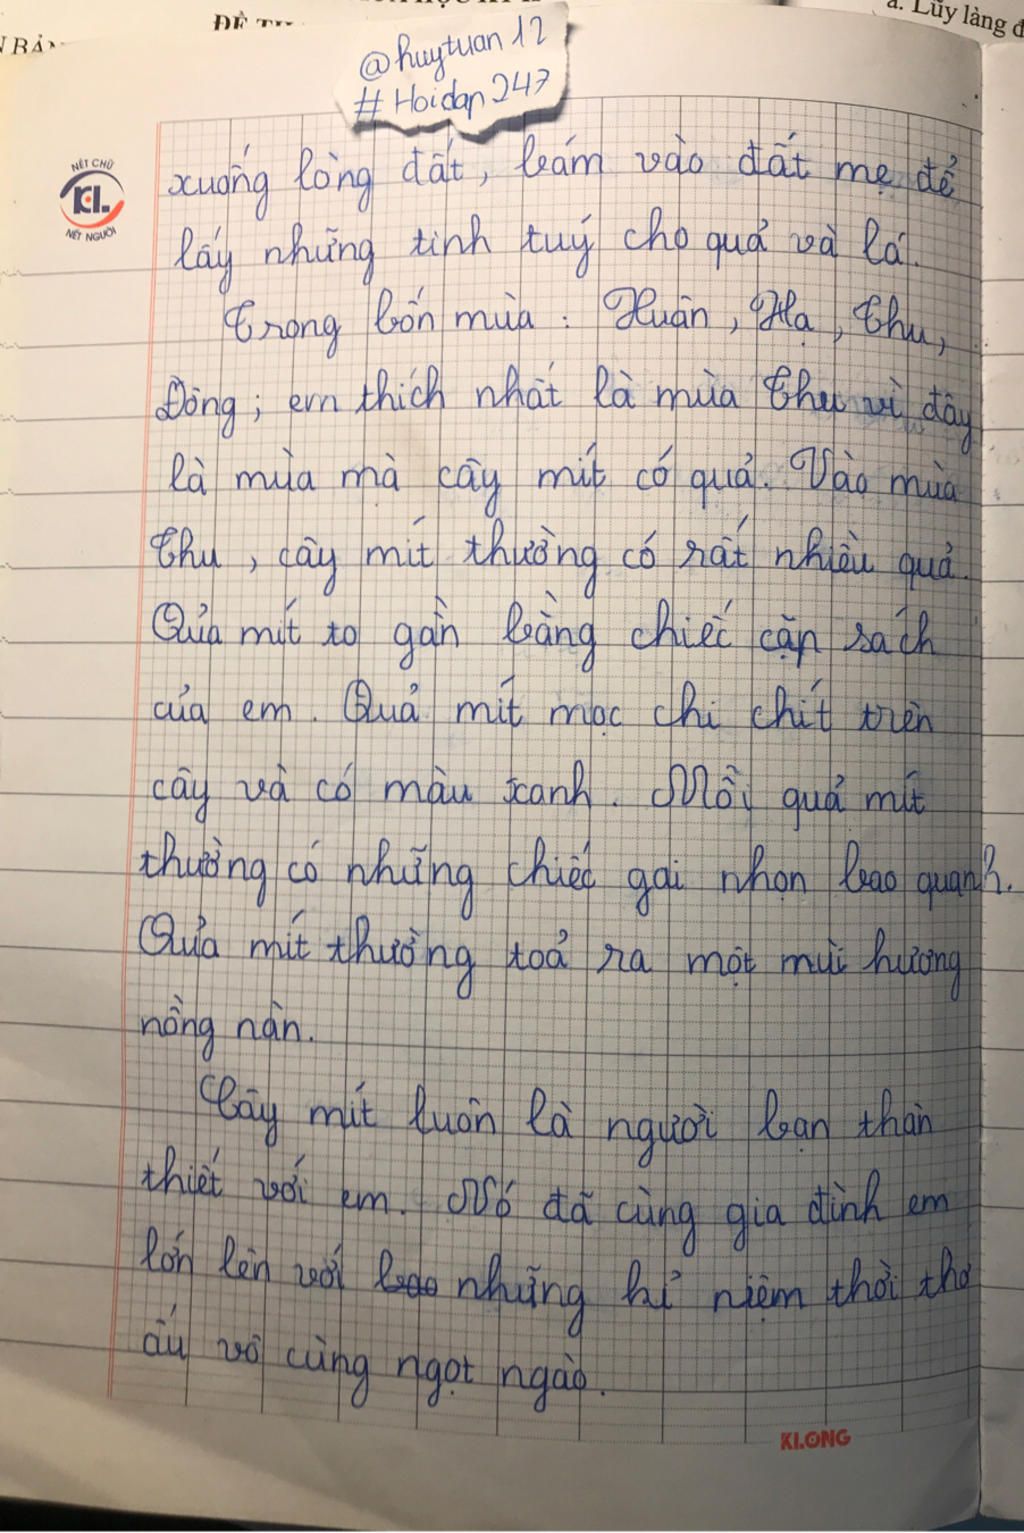 ĐỀ
a. Lũy làng đ
BẢN
@huytuan12
#Hoidap247
NÉT CHỮ
KL
NẾT NGƯỜI
xuống lòng đất, bám vào đất mẹ để
lấy những tinh tuý cho quả và lá.
Trong bốn mùa : Xuân, Hạ, Thu,
Đông; em thích nhất là mùa Thu vì đây
là mùa mà cây mít có quả. Vào mùa
Thu, cây mít thường có rất nhiều quả.
Qủa mít to gần bằng chiếc cặp sách
của em. Quả mít mọc chi chít trên
cây và có màu xanh. Mỗi quả mít
thường có những chiếc gai nhọn bao quanh.
Qủa mít thường toả ra một mùi hương
nồng nàn.
Cây mít luôn là người bạn thân
thiết với em. Nó đã cùng gia đình em
lớn lên với bao những kỉ niệm thời thơ
ấu vô cùng ngọt ngào.
KLONG